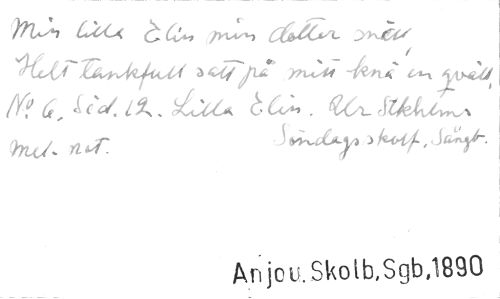 Min lilla Elin min dotter snäll,
Helt tankfull satt på mitt knä en qväll,
No 6, Sid. 12. Lilla Elin. Ur Stkhlms
Söndagsskolf. Sångb.
mel. not.
Anjou. Skolb, Sgb, 1890